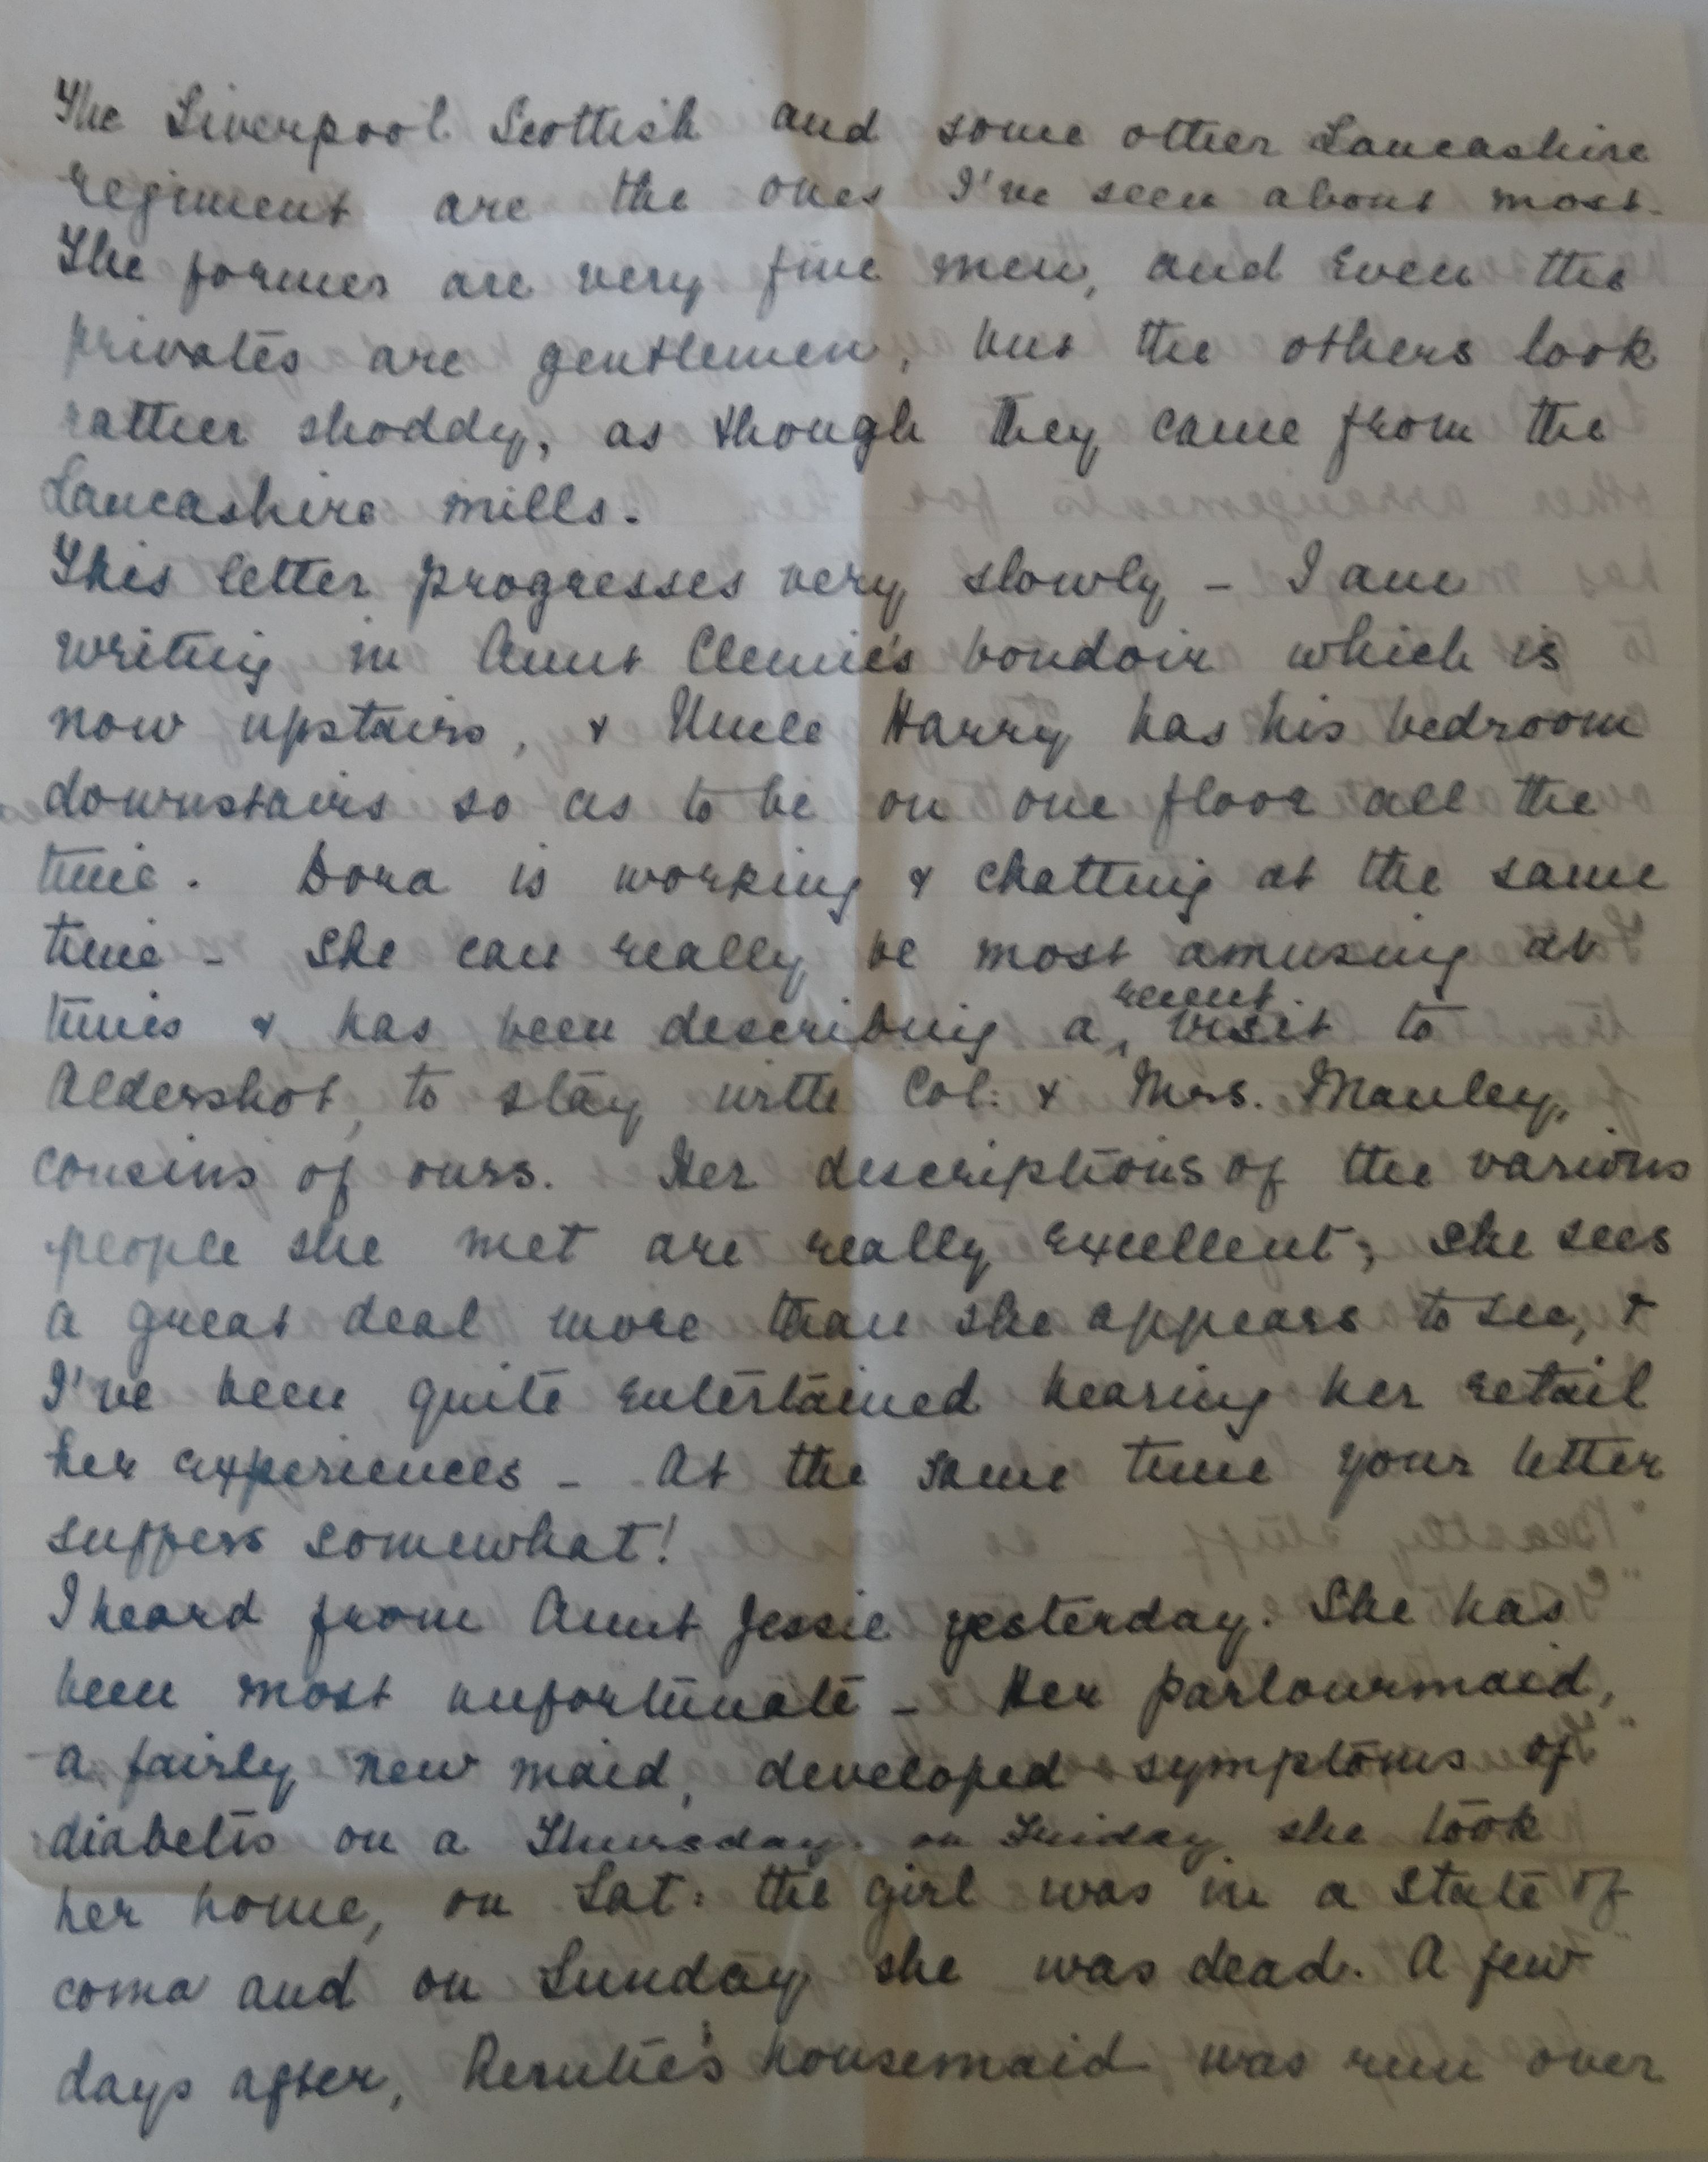 The Liverpool Scottish and some other Lancashire
regiment are the ones I've seen about most.
The former are very fine men, and even the
privates are gentlemen, but the others look
rather shoddy, as though they came from the
Lancashire mills.
This letter progresses very slowly - I am
writing in Aunt Clemie's boudoir which is
now upstairs, & Uncle Harry has his bedroom
downstairs so as to be on one floor all the
time. Dora is working & chatting at the same
time - She can really be most amusing at
times & has been describing a recent visit to
Aldershot, to stay with Col: & Mrs. Manley,
cousins of ours. Her descriptions of the various
people she met are really excellent; she sees
a great deal more than she appears to see, &
I've been quite entertained hearing her retail
her experiences - At the same time your letter
suffers somewhat!
I heard from Aunt Jessie yesterday. She has
been most unfortunate - Her parlourmaid,
a fairly new maid, developed symptoms of
diabetis on a Thursday. on Friday she took
her home, on Sat: the girl was in a state of
coma and on Sunday she was dead. A few
days after, housemaid was run over